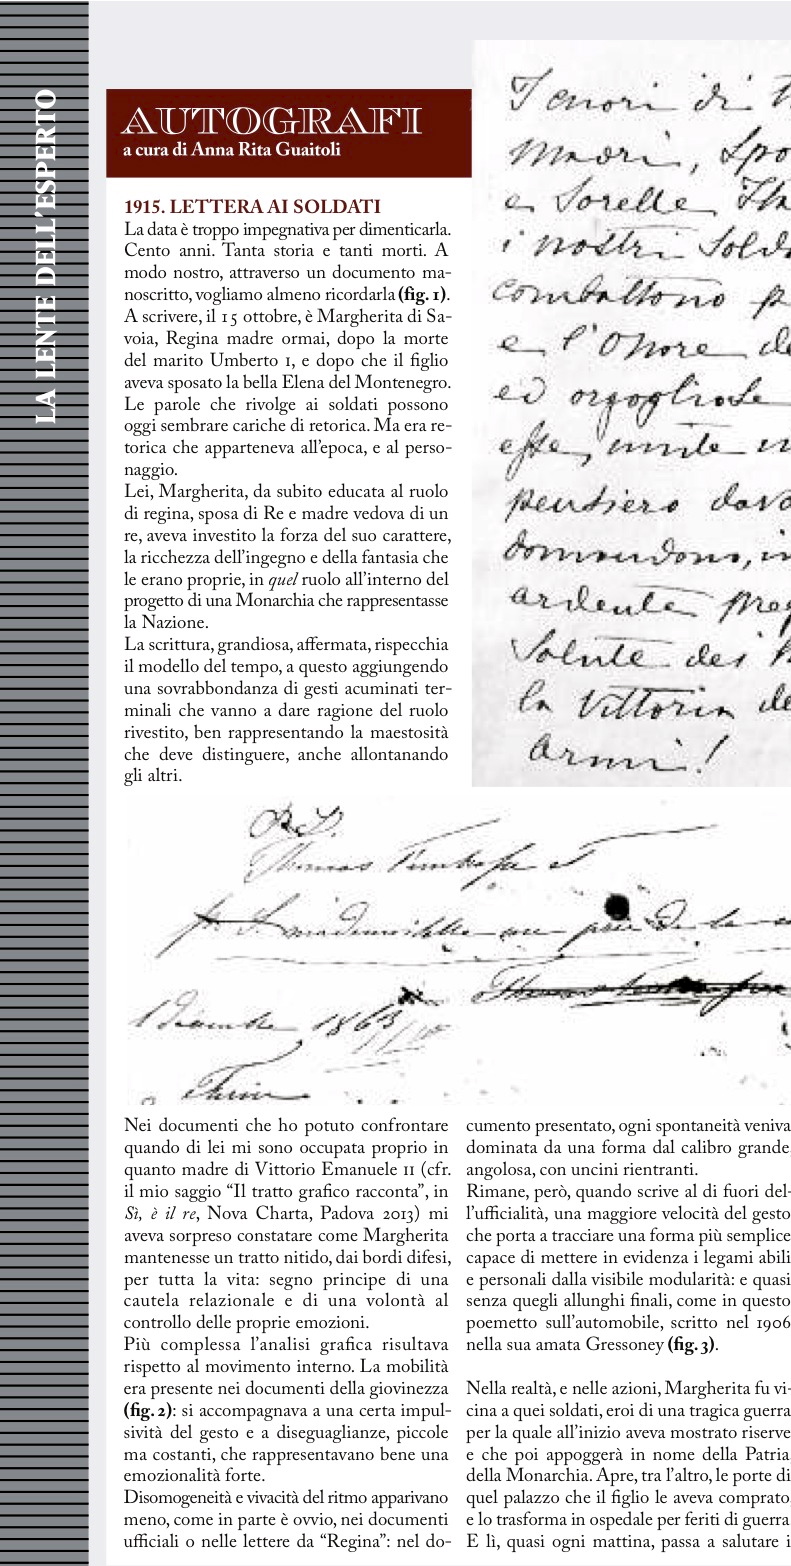 LA LENTE DELL'ESPERTO
AUTOGRAFI
a cura di Anna Rita Guaitoli
1915. LETTERA AI SOLDATI
La data è troppo impegnativa per dimenticarla.
Cento anni. Tanta storia e tanti morti. A
modo nostro, attraverso un documento ma-
noscritto, vogliamo almeno ricordarla (fig. 1).
A scrivere, il 15 ottobre, è Margherita di Sa-
voia, Regina madre ormai, dopo la morte
del marito Umberto I, e dopo che il figlio
aveva sposato la bella Elena del Montenegro.
Le parole che rivolge ai soldati possono
oggi sembrare cariche di retorica. Ma era re-
torica che apparteneva all'epoca, e al perso-
naggio.
Lei, Margherita, da subito educata al ruolo
di regina, sposa di Re e madre vedova di un
re, aveva investito la forza del suo carattere,
la ricchezza dell'ingegno e della fantasia che
le erano proprie, in quel ruolo all'interno del
progetto di una Monarchia che rappresentasse
la Nazione.
La scrittura, grandiosa, affermata, rispecchia
il modello del tempo, a questo aggiungendo
una sovrabbondanza di gesti acuminati ter-
minali che vanno a dare ragione del ruolo
rivestito, ben rappresentando la maestosità
che deve distinguere, anche allontanando
gli altri.
Tenori di
Madri, Spo
e Sorelle Ita
i nostri Sold
combattono p
e l'Onore de
ed orgogliose
esse, unite
pensiero dav
domandono, in
ardente preg
Salute dei
la Vittoria de
armi!
P.S.
Thomas
mademoiselle au de la
1863
Turin
Nei documenti che ho potuto confrontare
quando di lei mi sono occupata proprio in
quanto madre di Vittorio Emanuele II (cfr.
il mio saggio “Il tratto grafico racconta”, in
Sì, è il re, Nova Charta, Padova 2013) mi
aveva sorpreso constatare come Margherita
mantenesse un tratto nitido, dai bordi difesi,
per tutta la vita: segno principe di una
cautela relazionale e di una volontà al
controllo delle proprie emozioni.
Più complessa l'analisi grafica risultava
rispetto al movimento interno. La mobilità
era presente nei documenti della giovinezza
(fig. 2): si accompagnava a una certa impul-
sività del gesto e a diseguaglianze, piccole
ma costanti, che rappresentavano bene una
emozionalità forte.
Disomogeneità e vivacità del ritmo apparivano
meno, come in parte è ovvio, nei documenti
ufficiali o nelle lettere da “Regina”: nel do-
cumento presentato, ogni spontaneità veniva
dominata da una forma dal calibro grande,
angolosa, con uncini rientranti.
Rimane, però, quando scrive al di fuori del-
l'ufficialità, una maggiore velocità del gesto
che porta a tracciare una forma più semplice
capace di mettere in evidenza i legami abili
e personali dalla visibile modularità: e quasi
senza quegli allunghi finali, come in questo
poemetto sull'automobile, scritto nel 1906
nella sua amata Gressoney (fig. 3).
Nella realtà, e nelle azioni, Margherita fu vi-
cina a quei soldati, eroi di una tragica guerra
per la quale all'inizio aveva mostrato riserve
e che poi appoggerà in nome della Patria,
della Monarchia. Apre, tra l'altro, le porte di
quel palazzo che il figlio le aveva comprato,
e lo trasforma in ospedale per feriti di guerra.
E lì, quasi ogni mattina, passa a salutare i